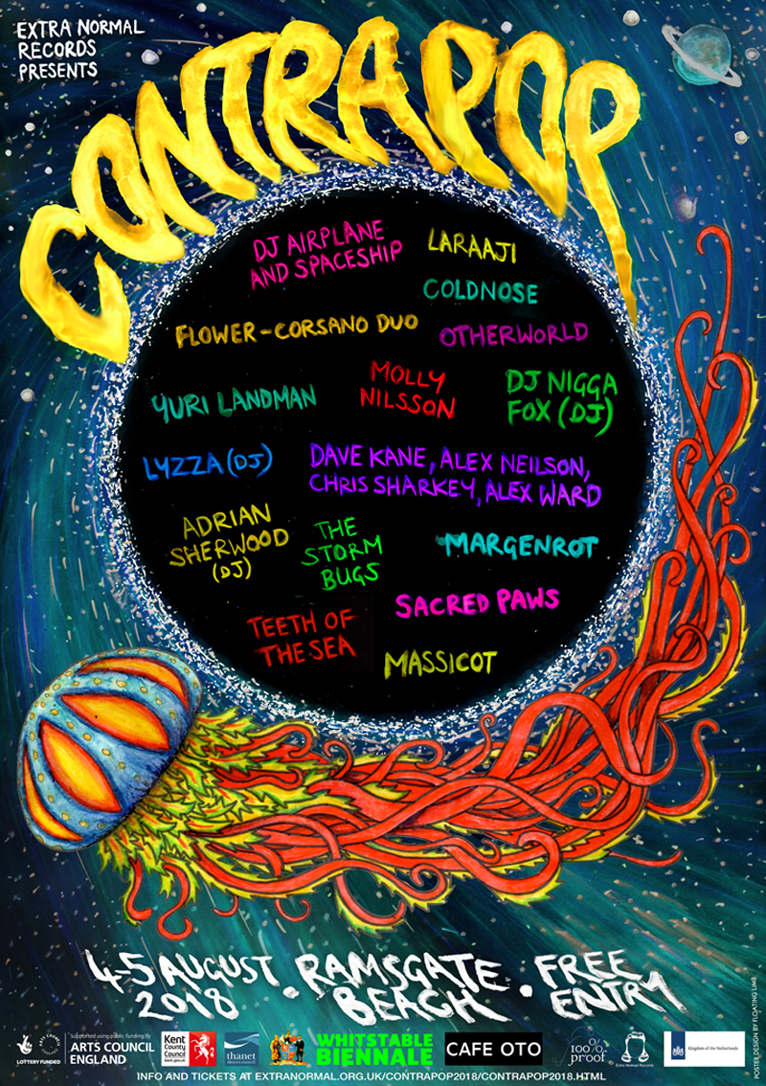 EXTRA NORMAL
RECORDS
PRESENTS
CONTRAPOP
DJ AIRPLANE
AND SPACESHIP
LARAAJI
COLDNOSE
FLOWER-CORSANO DUO
OTHERWORLD
YURI LANDMAN
MOLLY
NILSSON
DJ NIGGA
FOX (DJ)
LYZZA (DJ)
DAVE KANE, ALEX NEILSON,
CHRIS SHARKEY, ALEX WARD
ADRIAN
SHERWOOD
(DJ)
THE
STORM
BUGS
MARGENROT
SACRED PAWS
TEETH OF
THE SEA
MASSICOT
4-5 AUGUST
2018
. RAMSGATE
BEACH
. FREE
ENTRY
LOTTERY FUNDED
Supported using public funding by
ARTS COUNCIL
ENGLAND
Kent
County
Council
kent.gov.uk
thanet
district council
WHITSTABLE
BIENNALE
CAFE OTO
100%
proof
Extra Normal Records
Kingdom of the Netherlands
INFO AND TICKETS AT EXTRANORMAL.ORG.UK/CONTRAPOP2018/CONTRAPOP2018.HTML
POSTER DESIGN BY FLOATING LIMB